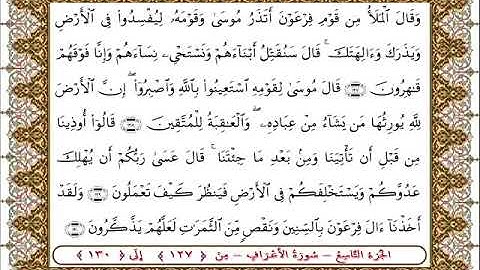 وَقَالَ ٱلْمَلَأُ مِن قَوْمِ فِرْعَوْنَ أَتَذَرُ مُوسَىٰ وَقَوْمَهُۥ لِيُفْسِدُوا۟ فِى ٱلْأَرْضِ
وَيَذَرَكَ وَءَالِهَتَكَ ۚ قَالَ سَنُقَتِّلُ أَبْنَآءَهُمْ وَنَسْتَحْىِۦ نِسَآءَهُمْ وَإِنَّا فَوْقَهُمْ
قَـٰهِرُونَ ۝١٢٧ قَالَ مُوسَىٰ لِقَوْمِهِ ٱسْتَعِينُوا۟ بِٱللَّهِ وَٱصْبِرُوٓا۟ ۖ إِنَّ ٱلْأَرْضَ
لِلَّهِ يُورِثُهَا مَن يَشَآءُ مِنْ عِبَادِهِۦ ۖ وَٱلْعَـٰقِبَةُ لِلْمُتَّقِينَ ۝١٢٨ قَالُوٓا۟ أُوذِينَا
مِن قَبْلِ أَن تَأْتِيَنَا وَمِنۢ بَعْدِ مَا جِئْتَنَا ۚ قَالَ عَسَىٰ رَبُّكُمْ أَن يُهْلِكَ
عَدُوَّكُمْ وَيَسْتَخْلِفَكُمْ فِى ٱلْأَرْضِ فَيَنظُرَ كَيْفَ تَعْمَلُونَ ۝١٢٩ وَلَقَدْ
أَخَذْنَآ ءَالَ فِرْعَوْنَ بِٱلسِّنِينَ وَنَقْصٍ مِّنَ ٱلثَّمَرَٰتِ لَعَلَّهُمْ يَذَّكَّرُونَ ۝١٣٠
الجزء التاسع - سورة الأعراف - من ﴿ ١٢٧ ﴾ إلى ﴿ ١٣٠ ﴾